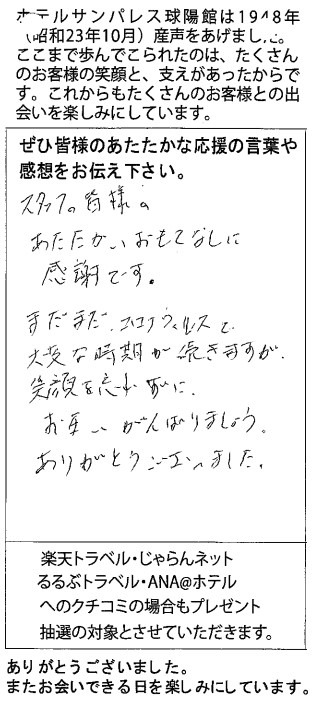 ホテルサンパレス球陽館は1948年
（昭和23年10月）産声をあげました。
ここまで歩んでこられたのは、たくさん
のお客様の笑顔と、支えがあったからで
す。これからもたくさんのお客様との出
会いを楽しみにしています。
ぜひ皆様のあたたかな応援の言葉や
感想をお伝え下さい。
スタッフの皆様の
あたたかいおもてなしに
感謝です。
まだまだ、コロナウィルスで
大変な時期が続きますが、
笑顔を忘れずに、
お互いがんばりましょう。
ありがとうございました。
楽天トラベル・じゃらんネット
るるぶトラベル・ANA@ホテル
へのクチコミの場合もプレゼント
抽選の対象とさせていただきます。
ありがとうございました。
またお会いできる日を楽しみにしています。